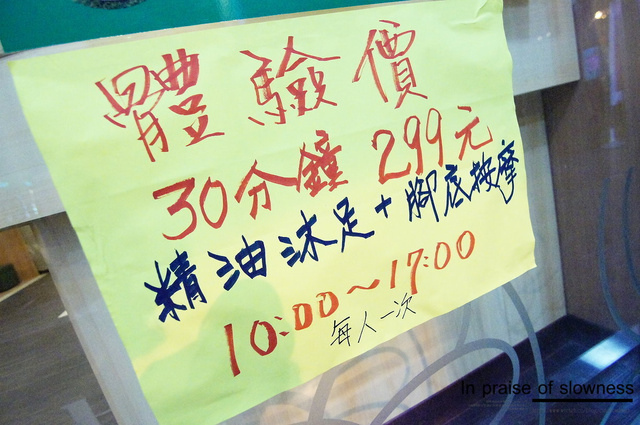 體驗價
30分鐘 299元
精油沐足+腳底按摩
10:00~17:00
每人一次
In praise of slowness